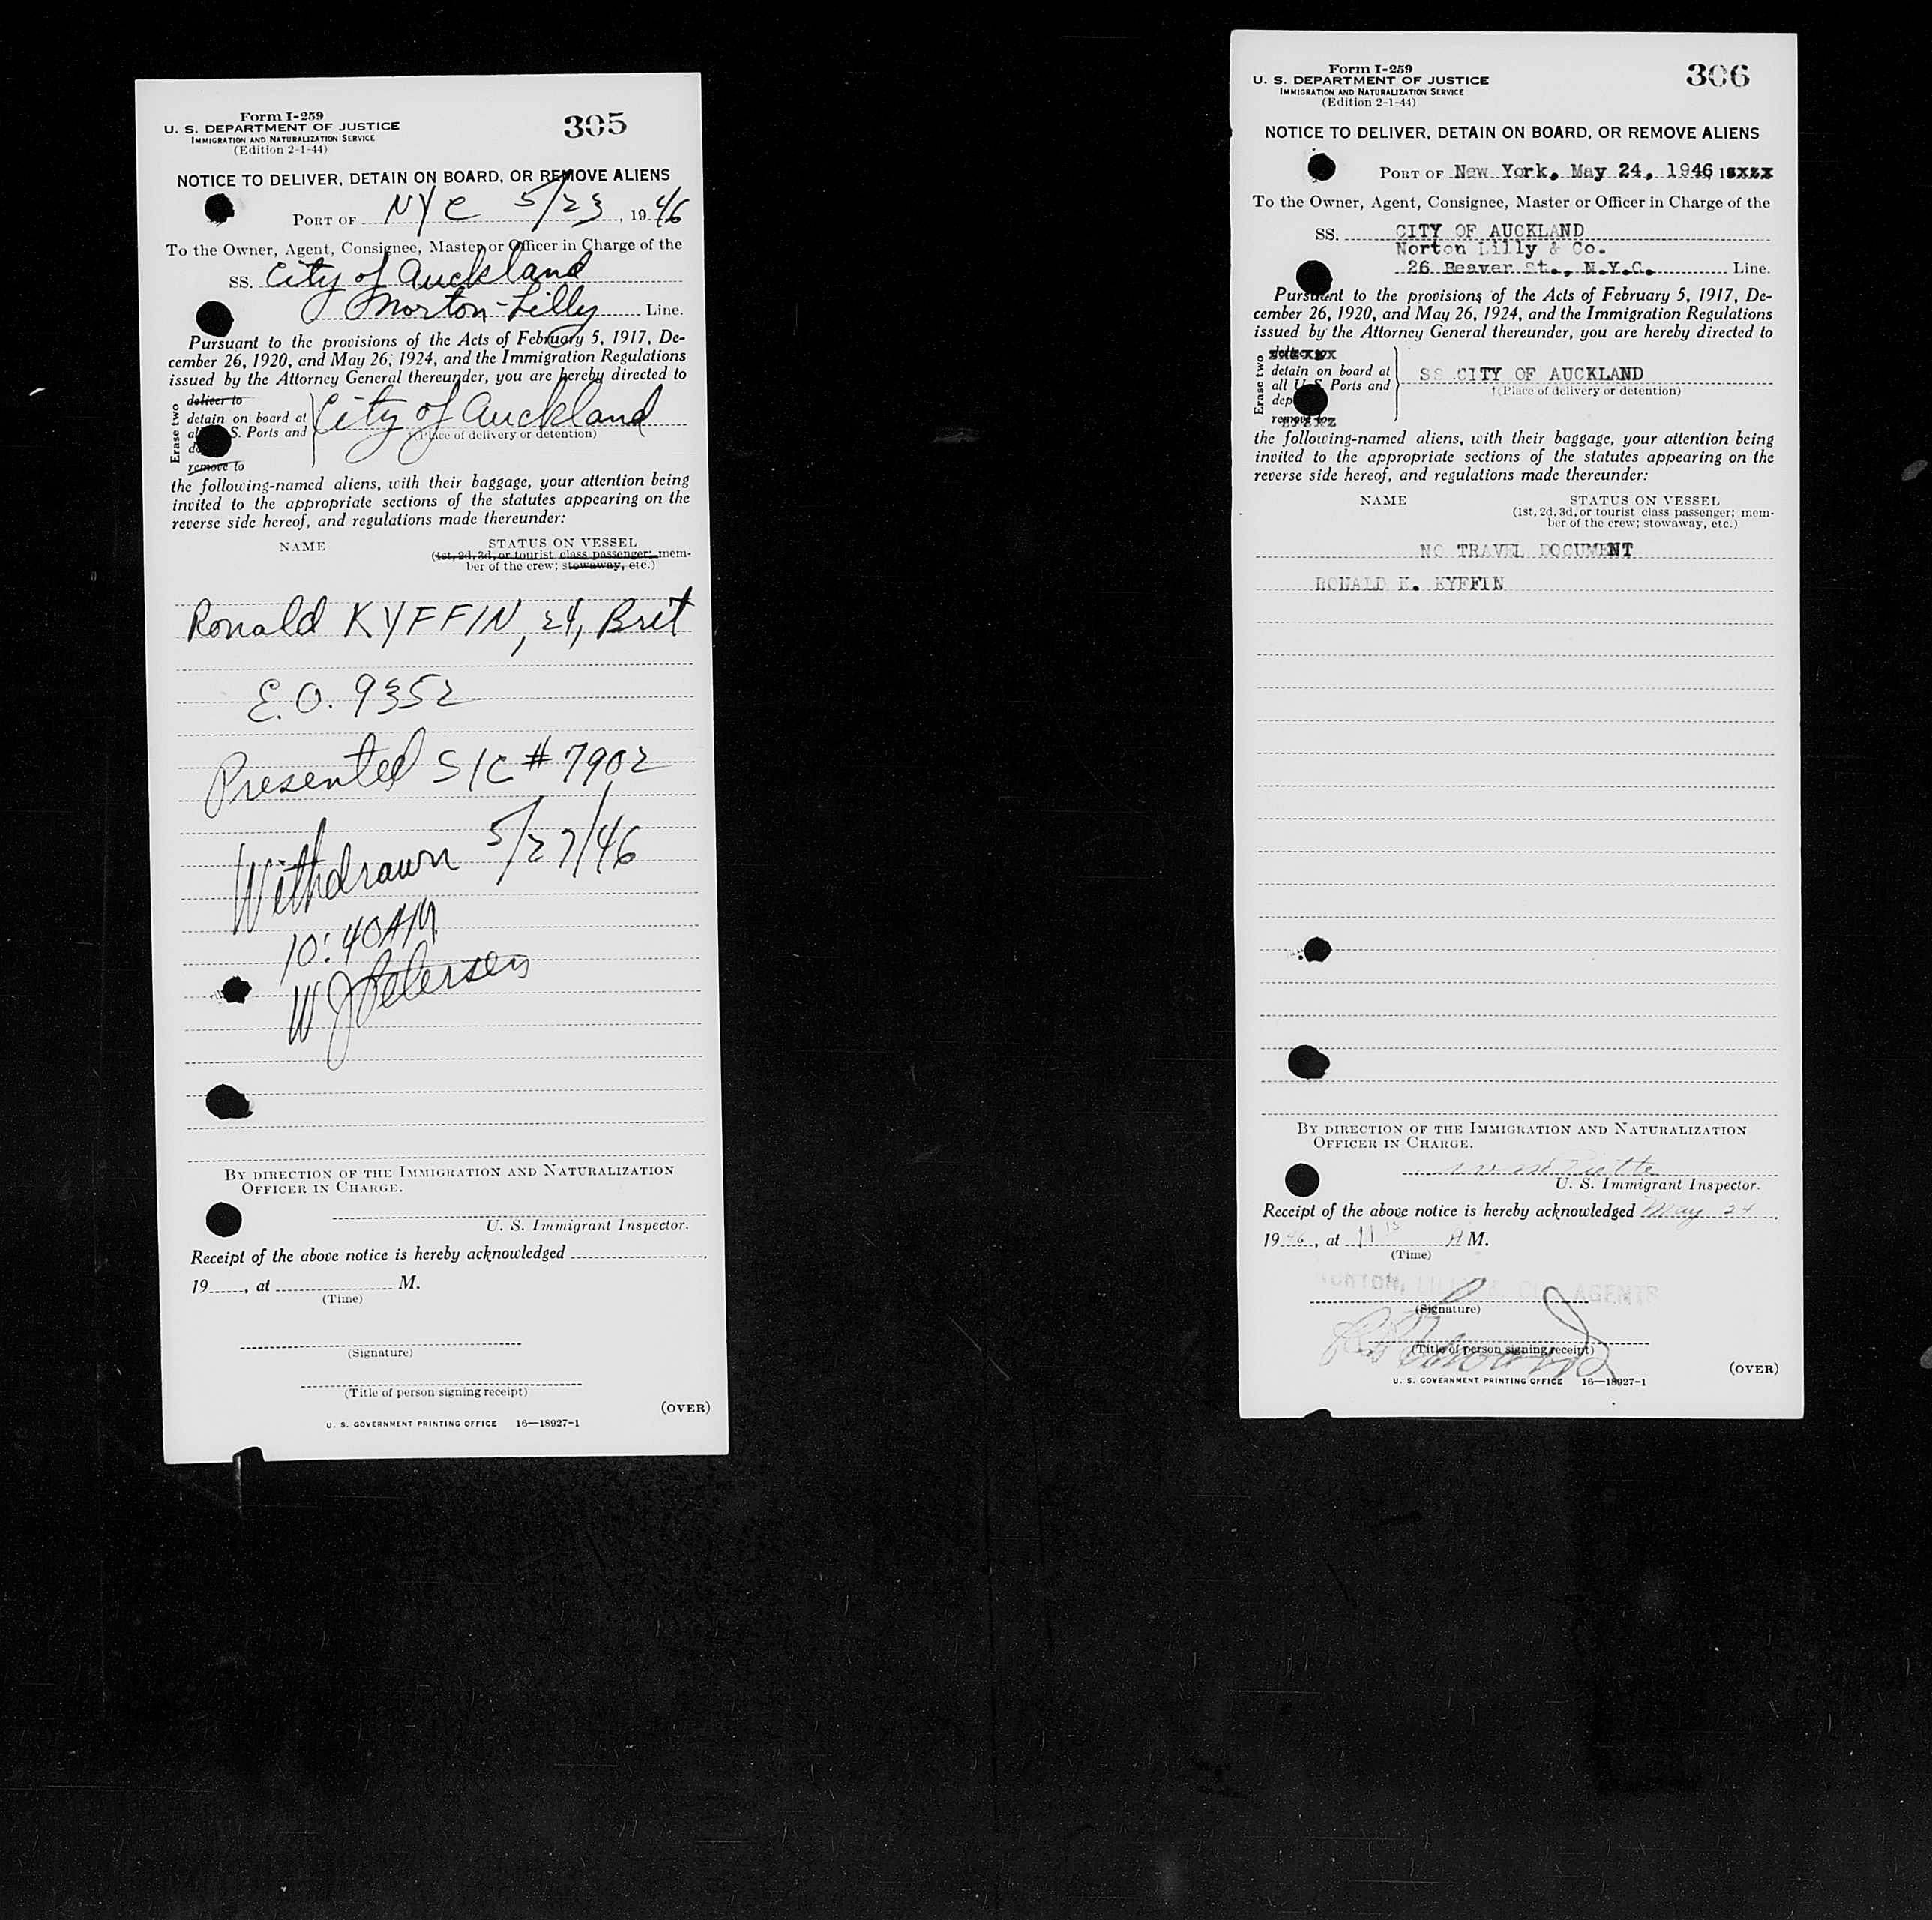 Form I-259
U. S. DEPARTMENT OF JUSTICE
IMMIGRATION AND NATURALIZATION SERVICE
(Edition 2-1-44)
305
NOTICE TO DELIVER, DETAIN ON BOARD, OR REMOVE ALIENS
PORT OF NYC 5/23, 1946
To the Owner, Agent, Consignee, Master or Officer in Charge of the
SS. City of Auckland
Norton-Lilly Line.
Pursuant to the provisions of the Acts of February 5, 1917, De-
cember 26, 1920, and May 26, 1924, and the Immigration Regulations
issued by the Attorney General thereunder, you are hereby directed to
Erase two
deliver to
detain on board at
S. Ports and
remove to
City of Auckland
(Place of delivery or detention)
the following-named aliens, with their baggage, your attention being
invited to the appropriate sections of the statutes appearing on the
reverse side hereof, and regulations made thereunder:
NAME STATUS ON VESSEL
(1st, 2d, 3d, or tourist class passenger; mem-
ber of the crew; stowaway, etc.)
Ronald KYFFIN, 24, Brit
E.O. 9352
Presented S/C # 7902
Withdrawn 5/27/46
10:40AM
W J Petersen
BY DIRECTION OF THE IMMIGRATION AND NATURALIZATION
OFFICER IN CHARGE.
U. S. Immigrant Inspector.
Receipt of the above notice is hereby acknowledged
19, at M.
(Time)
(Signature)
(Title of person signing receipt)
(OVER)
U. S. GOVERNMENT PRINTING OFFICE 16—18927-1
Form I-259
U. S. DEPARTMENT OF JUSTICE
IMMIGRATION AND NATURALIZATION SERVICE
(Edition 2-1-44)
306
NOTICE TO DELIVER, DETAIN ON BOARD, OR REMOVE ALIENS
PORT OF New York, May 24, 1946, 1xxxx
To the Owner, Agent, Consignee, Master or Officer in Charge of the
SS. CITY OF AUCKLAND
Norton Lilly & Co.
26 Beaver St., N.Y.C. Line.
Pursuant to the provisions of the Acts of February 5, 1917, De-
cember 26, 1920, and May 26, 1924, and the Immigration Regulations
issued by the Attorney General thereunder, you are hereby directed to
Erase two
deliver to
detain on board at
all U. S. Ports and
remove to
SS CITY OF AUCKLAND
(Place of delivery or detention)
the following-named aliens, with their baggage, your attention being
invited to the appropriate sections of the statutes appearing on the
reverse side hereof, and regulations made thereunder:
NAME STATUS ON VESSEL
(1st, 2d, 3d, or tourist class passenger; mem-
ber of the crew; stowaway, etc.)
NO TRAVEL DOCUMENT
RONALD K. KYFFIN
BY DIRECTION OF THE IMMIGRATION AND NATURALIZATION
OFFICER IN CHARGE.
U. S. Immigrant Inspector.
Receipt of the above notice is hereby acknowledged May 24,
1946, at 11 15 A M.
(Time)
NORTON, LILLY & CO., AGENTS
(Signature)
(Title of person signing receipt)
(OVER)
U. S. GOVERNMENT PRINTING OFFICE 16—18927-1